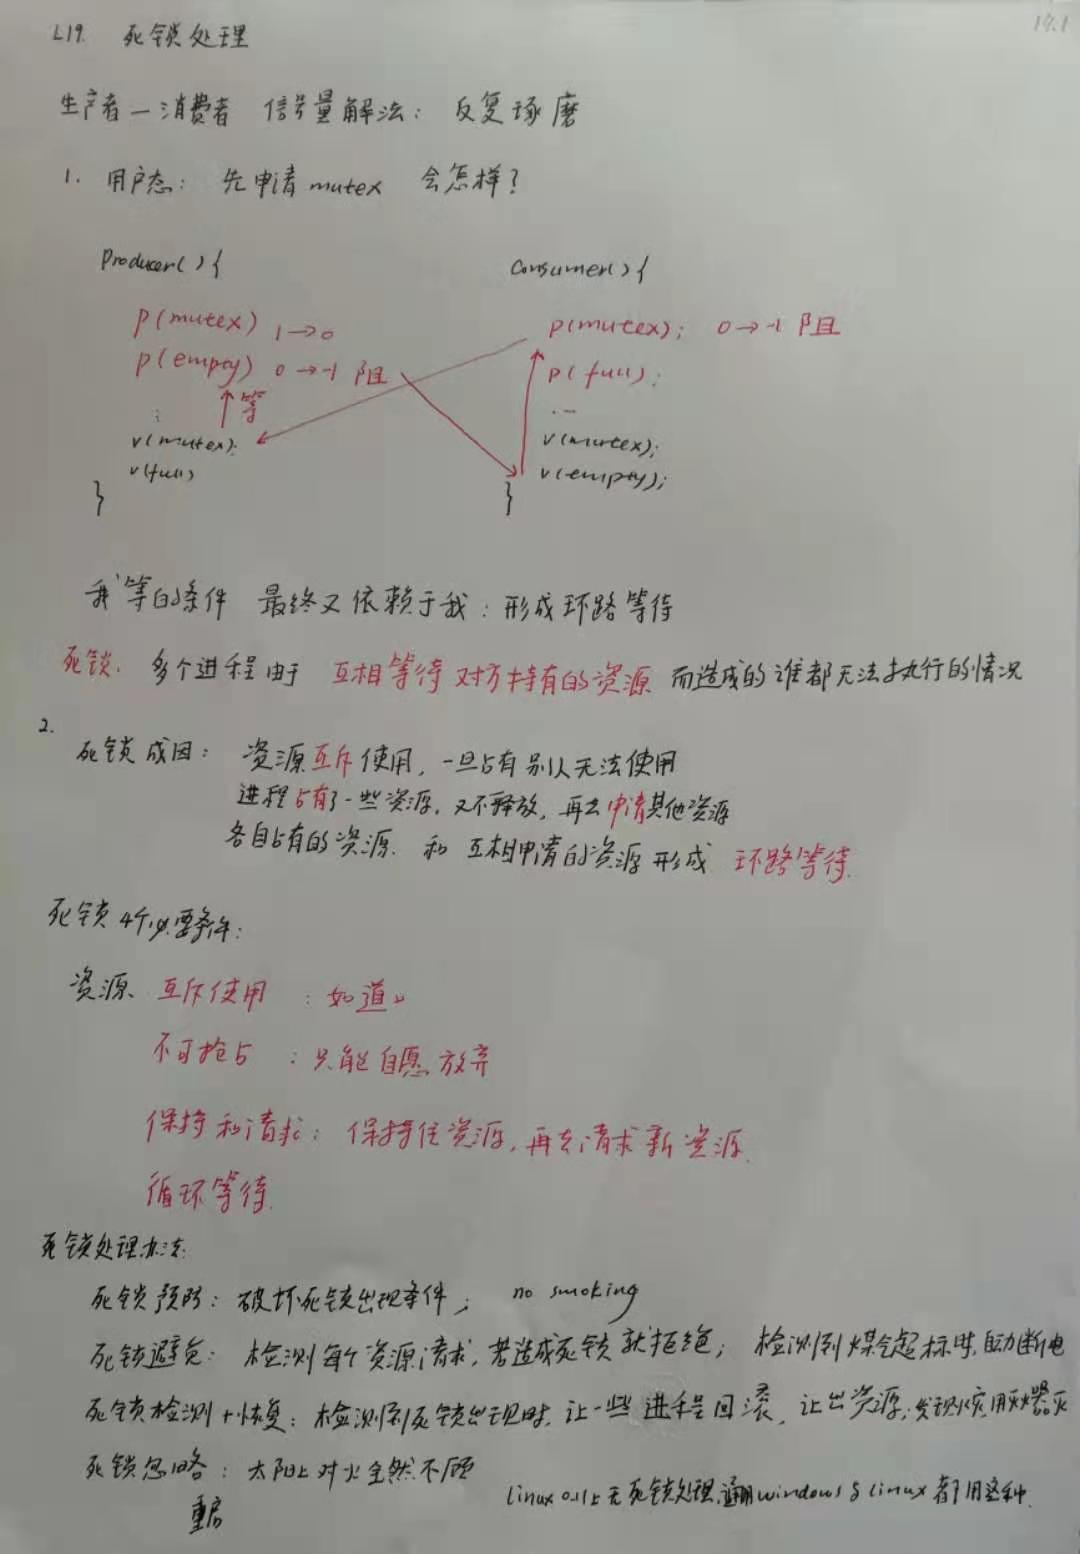 19.1
L19. 死锁处理
生产者—消费者 信号量解法: 反复琢磨
1. 用户态: 先申请mutex 会怎样?
Producer(){ Consumer(){
P(mutex) 1→0 P(mutex); 0→-1 阻
P(empty) 0→-1 阻 P(full);
等
⋮ ...
v(mutex); v(mutex);
v(full) v(empty);
} }
我等的条件 最终又依赖于我: 形成环路等待
死锁. 多个进程由于 互相等待对方持有的资源 而造成的谁都无法执行的情况
2.
死锁成因: 资源互斥使用, 一旦占有别人无法使用
进程占有了一些资源, 又不释放, 再去申请其他资源
各自占有的资源 和 互相申请的资源形成 环路等待.
死锁4个必要条件:
资源 互斥使用 : 如道口
不可抢占 : 只能自愿放弃
保持和请求: 保持住资源, 再去请求新资源.
循环等待.
死锁处理办法:
死锁预防: 破坏死锁出现条件; no smoking
死锁避免: 检测每个资源请求, 若造成死锁就拒绝; 检测到煤气超标时, 自动断电
死锁检测+恢复: 检测到死锁出现时, 让一些进程回滚, 让出资源; 发现火灾用灭火器灭
死锁忽略: 太阳上对火全然不顾
重启 linux 0.11上无死锁处理, 通用windows & linux 都用这种.